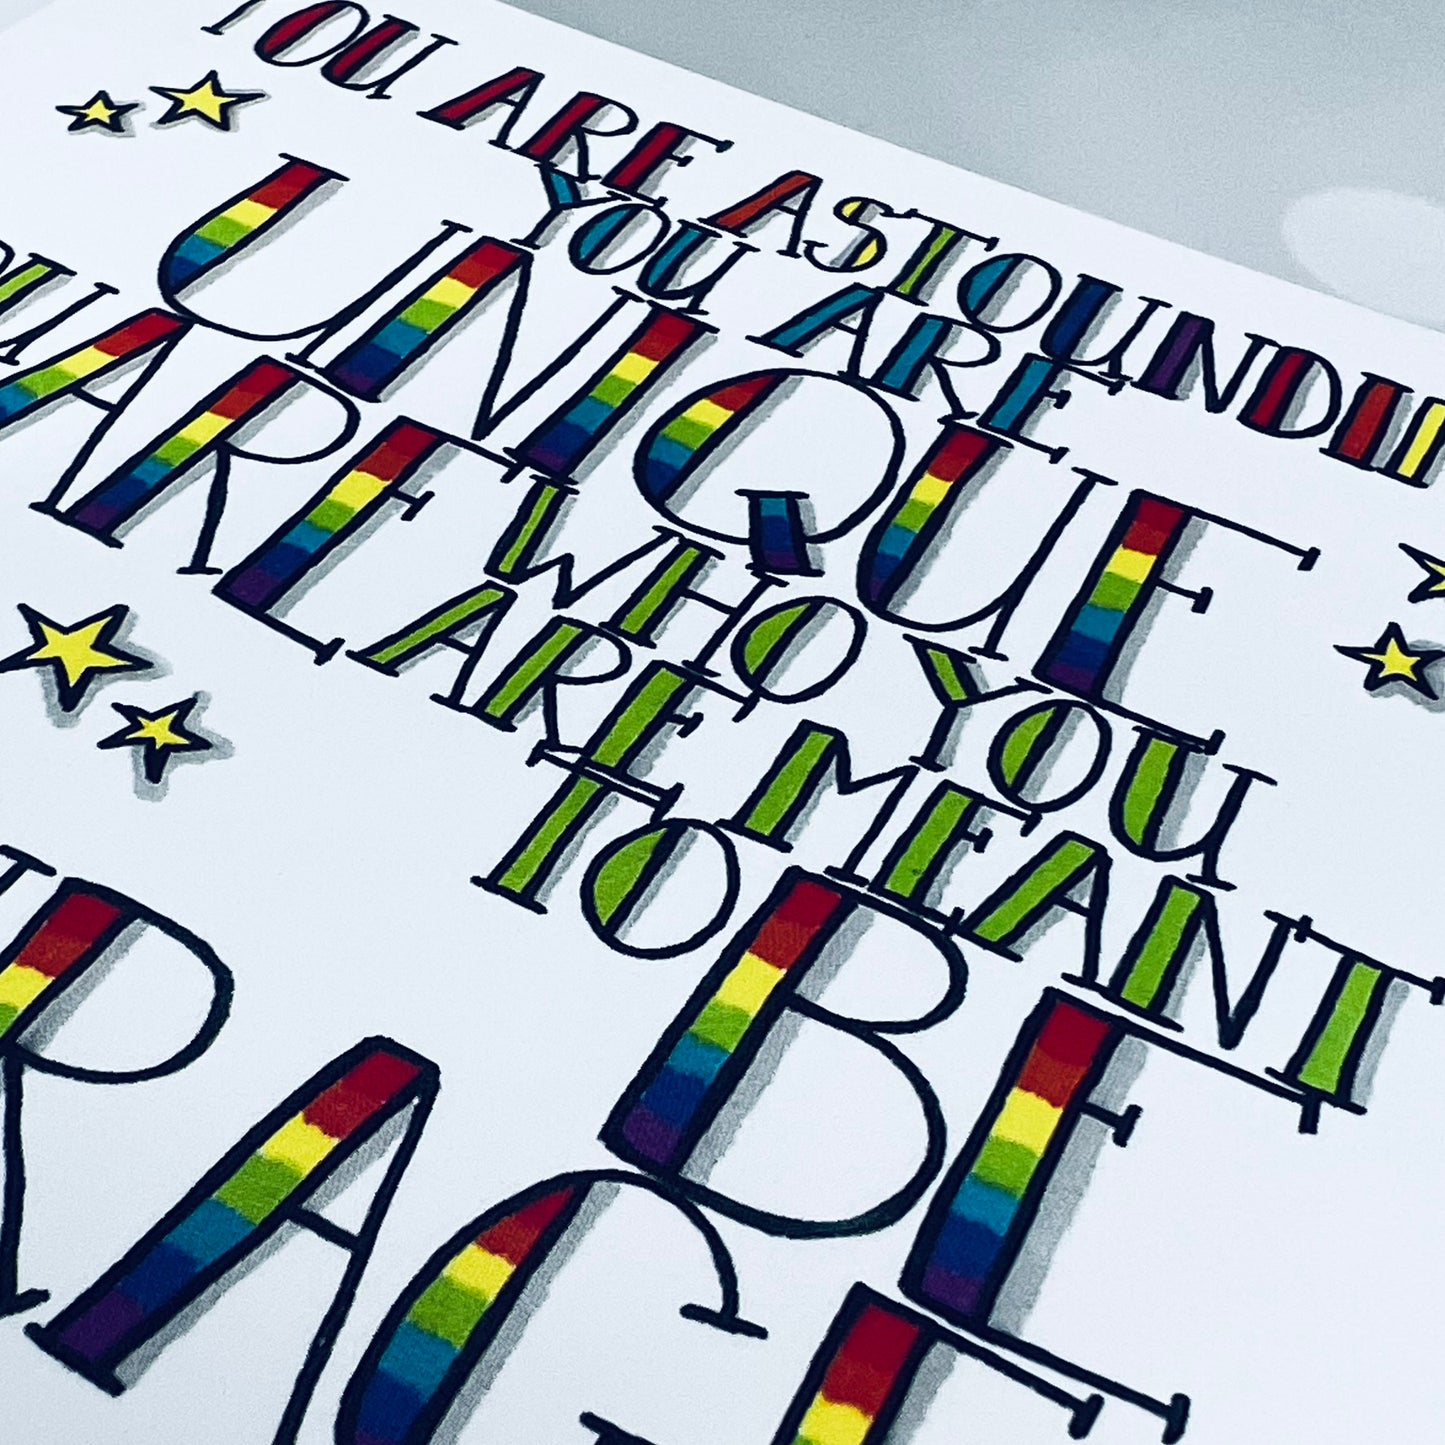 YOU ARE ASTOUNDI
YOU ARE
UNIQUE
OU
ARE WHO YOU
ARE MEANT
TO BE
RACE